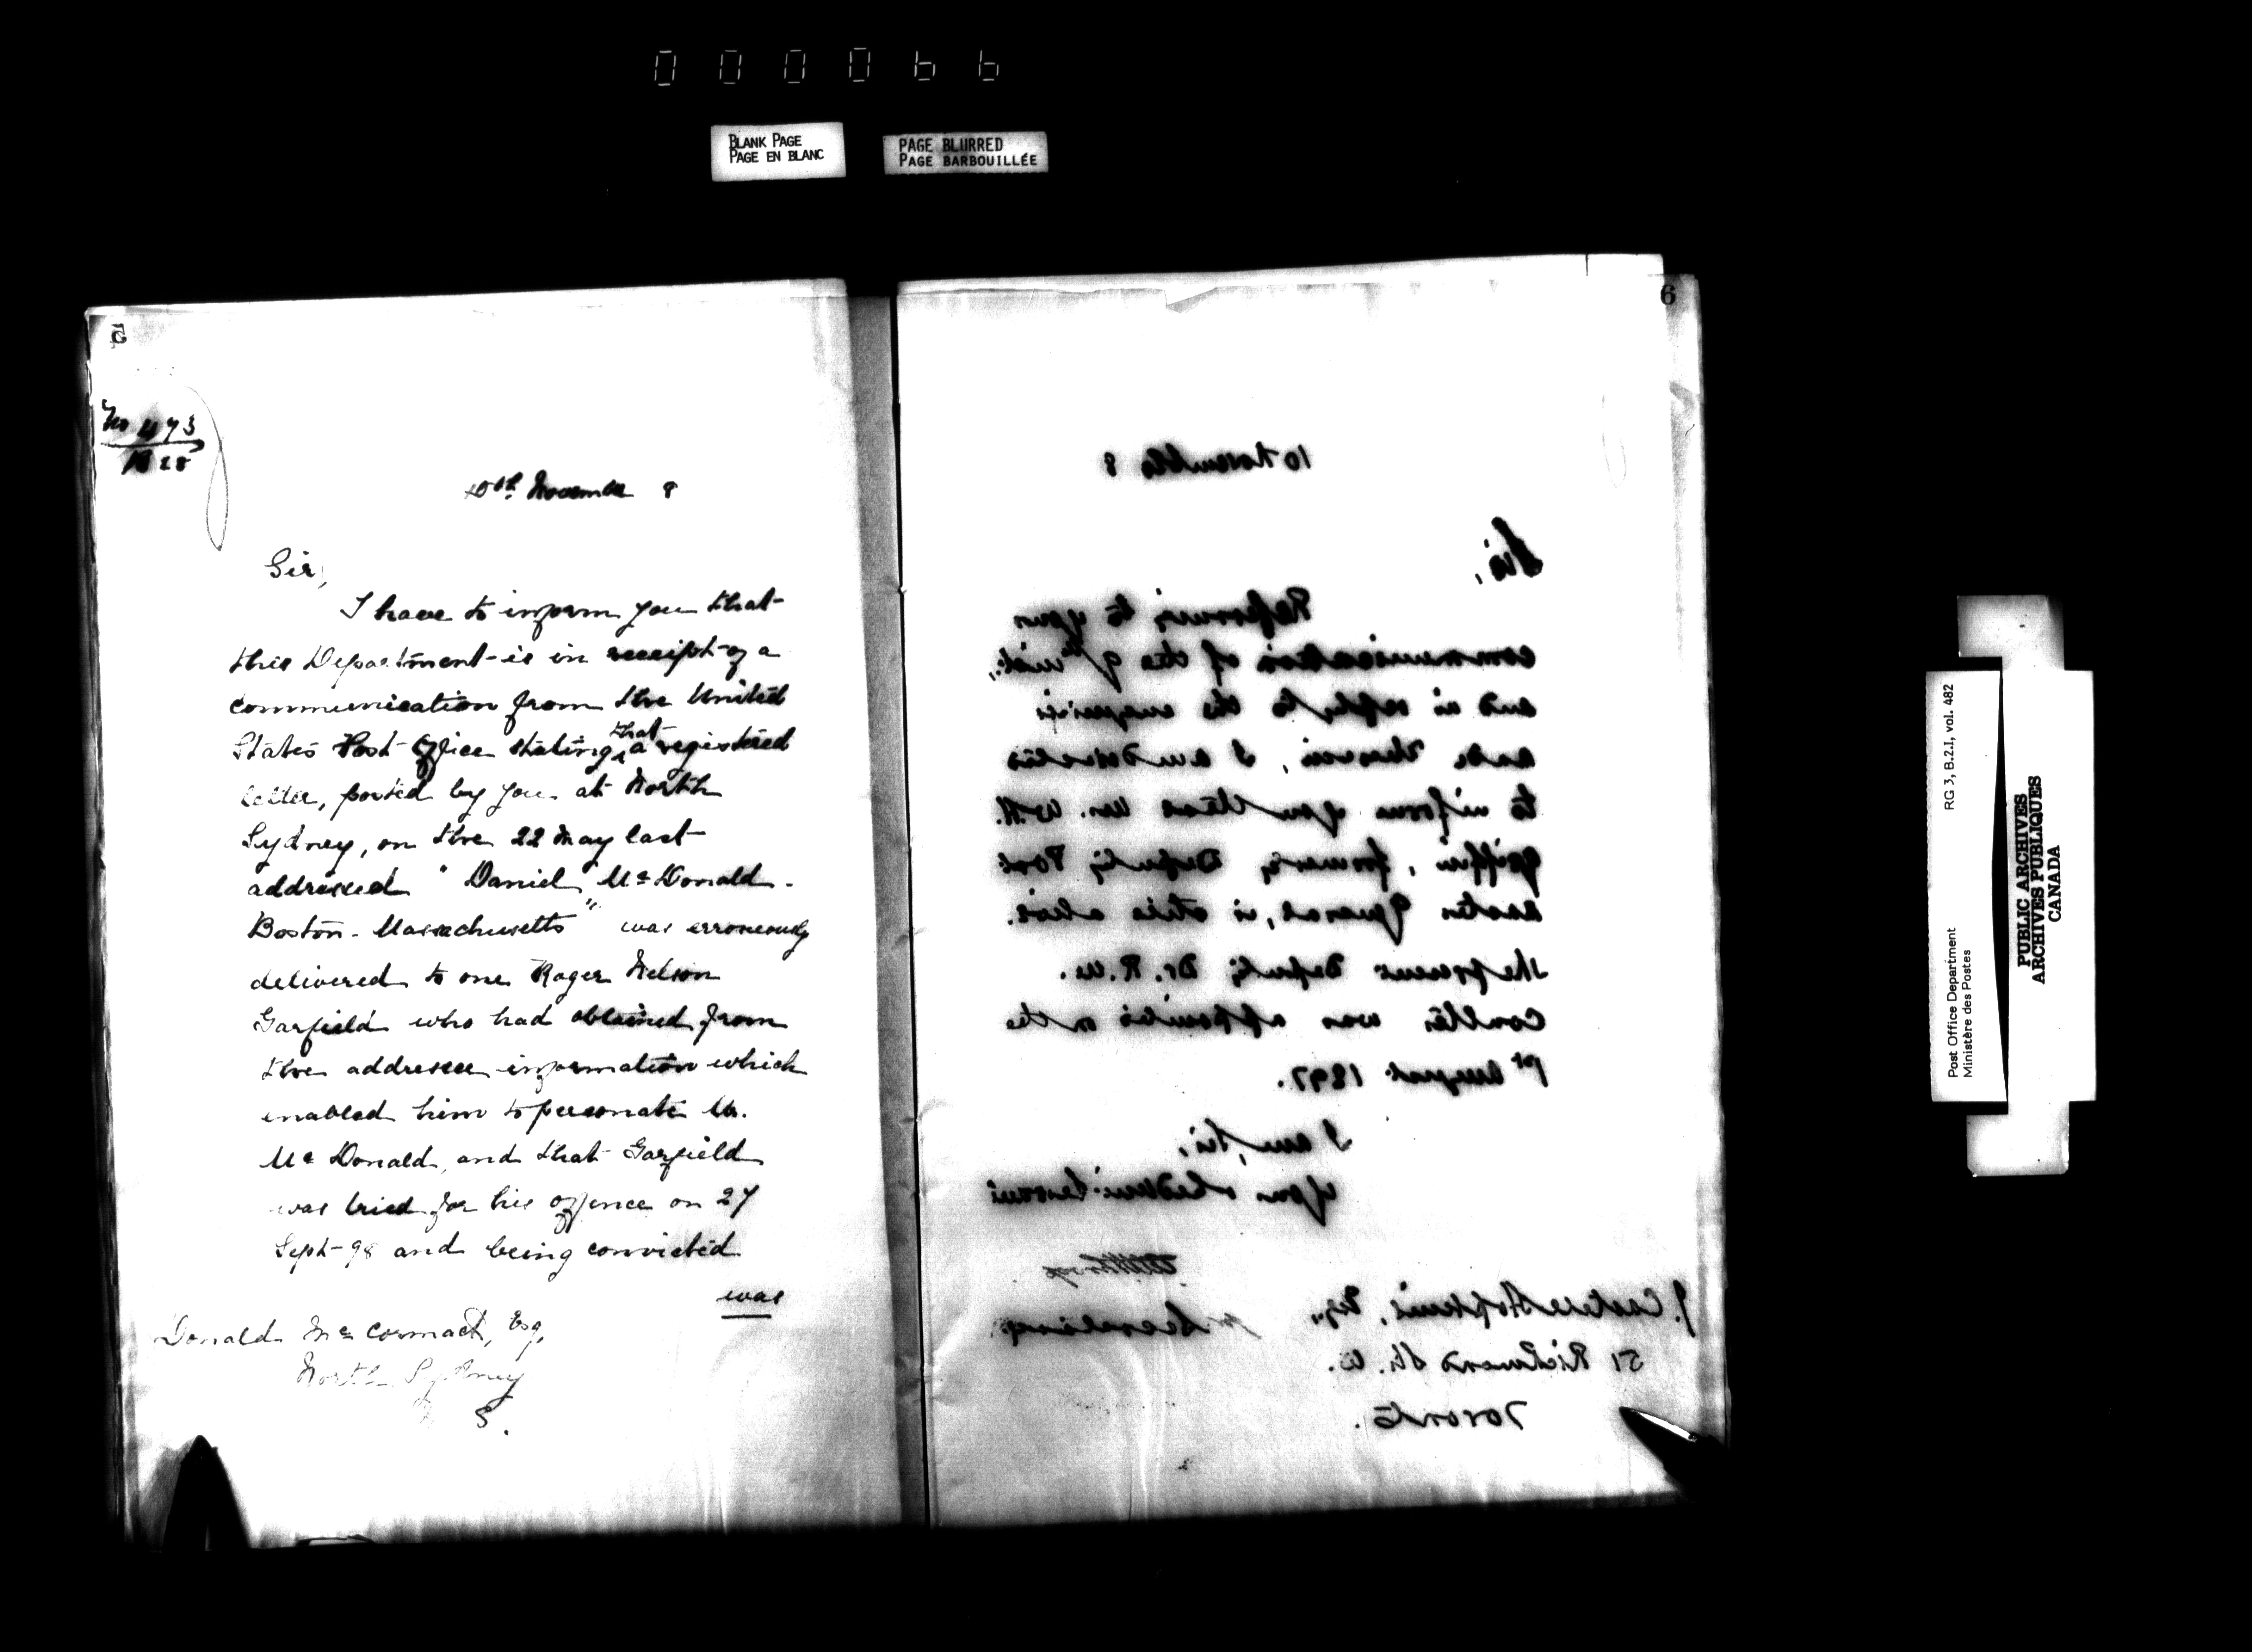 000066
BLANK PAGE
PAGE EN BLANC
PAGE BLURRED
PAGE BARBOUILLÉE
5
No 473
10th November 8
Sir,
I have to inform you that
this Department is in receipt of a
communication from the United
States Post Office stating that a registered
letter, posted by you at North
Sydney, on the 22 May last
addressed "Daniel Mc Donald
Boston - Massachusetts" was erroneously
delivered to one Roger Nelson
Garfield who had obtained from
the addressee information which
enabled him to personate Mr.
Mc Donald, and that Garfield
was tried for his offence on 27
Sept-98 and being convicted
was
Donald Mc Cormack, Esq,
North Sydney
S.
6
10 November 8
Sir,
Referring to your
communication of the 9th inst:,
and in reply to the enquiries
made therein, I am directed
to inform you that Mr. W.H.
Griffin, formerly Deputy Post
master General, is still alive.
The present Deputy Dr. R.M.
Coulter was appointed on the
1st August 1897.
I am, Sir,
Your obedient Servant
for Secretary.
J. Castell Hopkins, Esq.,
51 Richmond St. W.
Toronto.
Post Office Department
Ministère des Postes
RG 3, B.2.I, vol. 482
PUBLIC ARCHIVES
ARCHIVES PUBLIQUES
CANADA